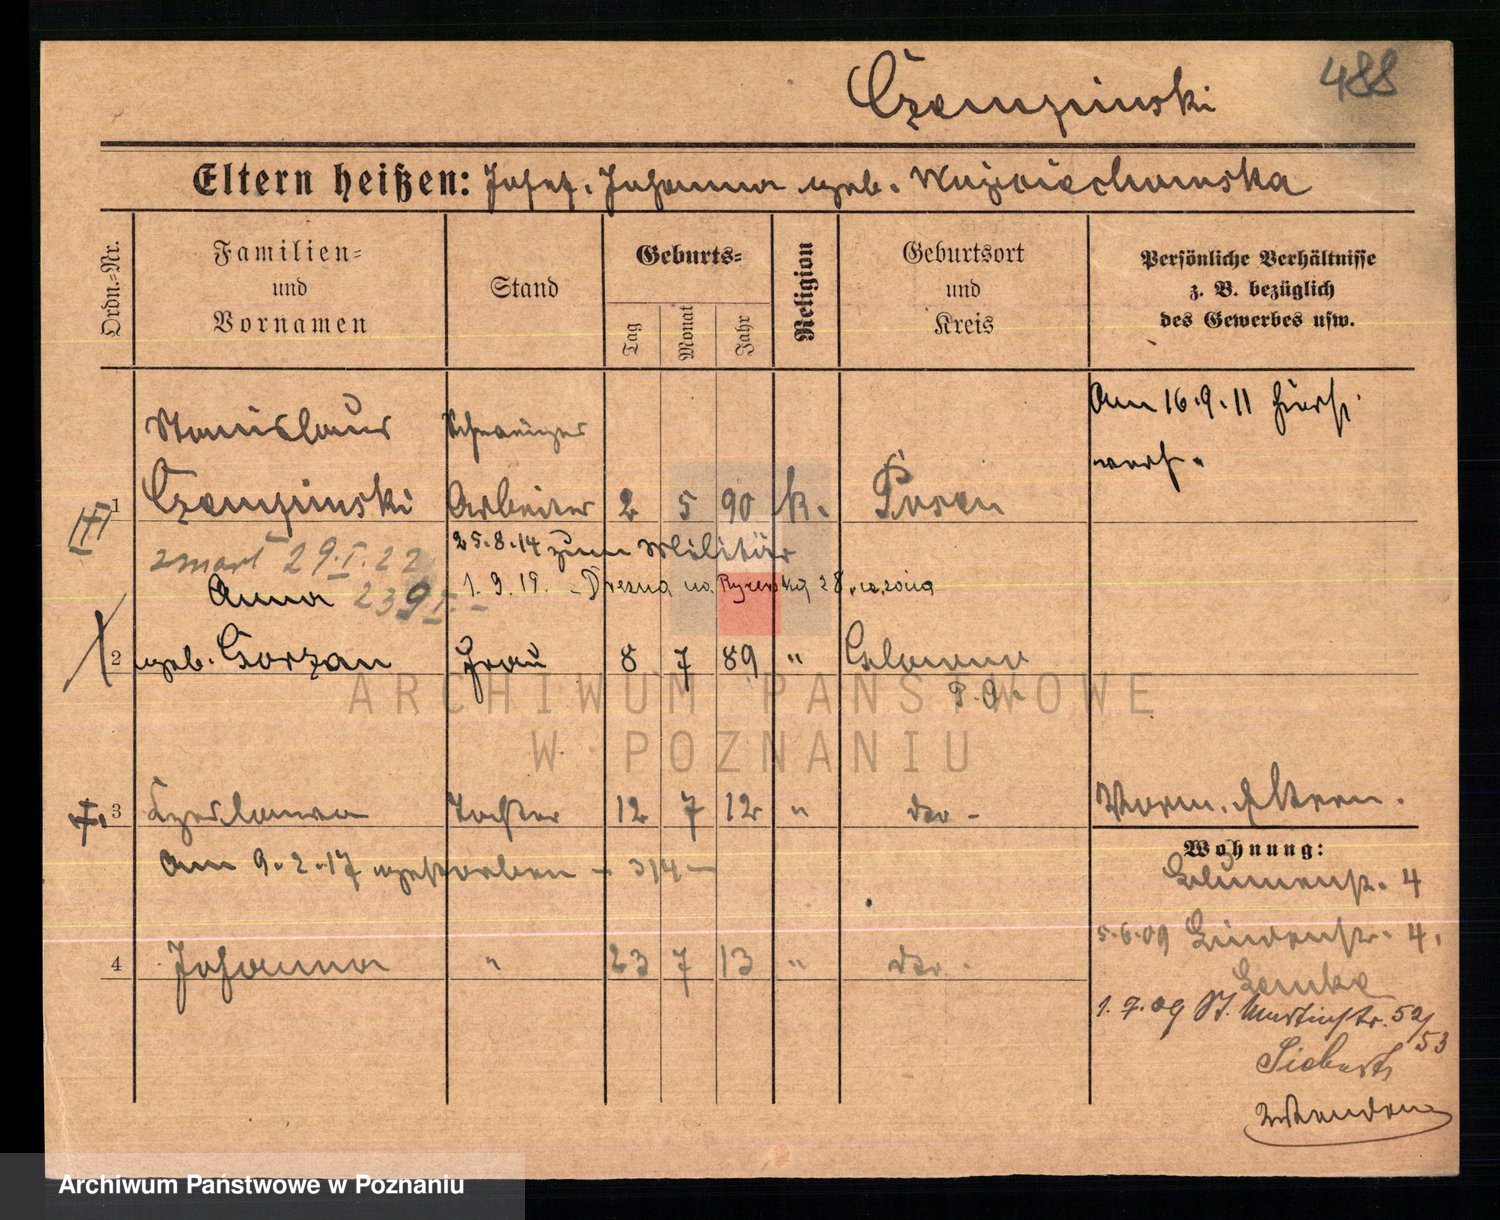 488
Czemzinski
Eltern heißen: Josef. Johanna geb. Wojciechowska
Ordn.-Nr.
Familien-
und
Vornamen
Stand
Geburts-
Tag
Monat
Jahr
Religion
Geburtsort
und
Kreis
Persönliche Verhältnisse
z. B. bezüglich
des Gewerbes usw.
Am 16.9.11 hiers.
verh.
Stanislaus
1 Czemzinski Arbeiter 2 5 90 k. Posen
25.8.14 zum Militär
zmarł 29.I.22
1.9.19. 28
Anna
2 geb. Gorzan Frau 8 7 89 "
P. O.
3 Czeslawa Tochter 12 7 12 " do -
Am 9.2.17 gestorben - 314 -
Vorm. Eltern.
Wohnung:
Blumenstr. 4
5.6.09 Lindenstr. 4,
Lemke
4 Johanna " 23 7 13 " do -
1.7.09 St. Martinstr. 52/
53
Siebert
ARCHIWUM PAŃSTWOWE
W POZNANIU
Archiwum Państwowe w Poznaniu